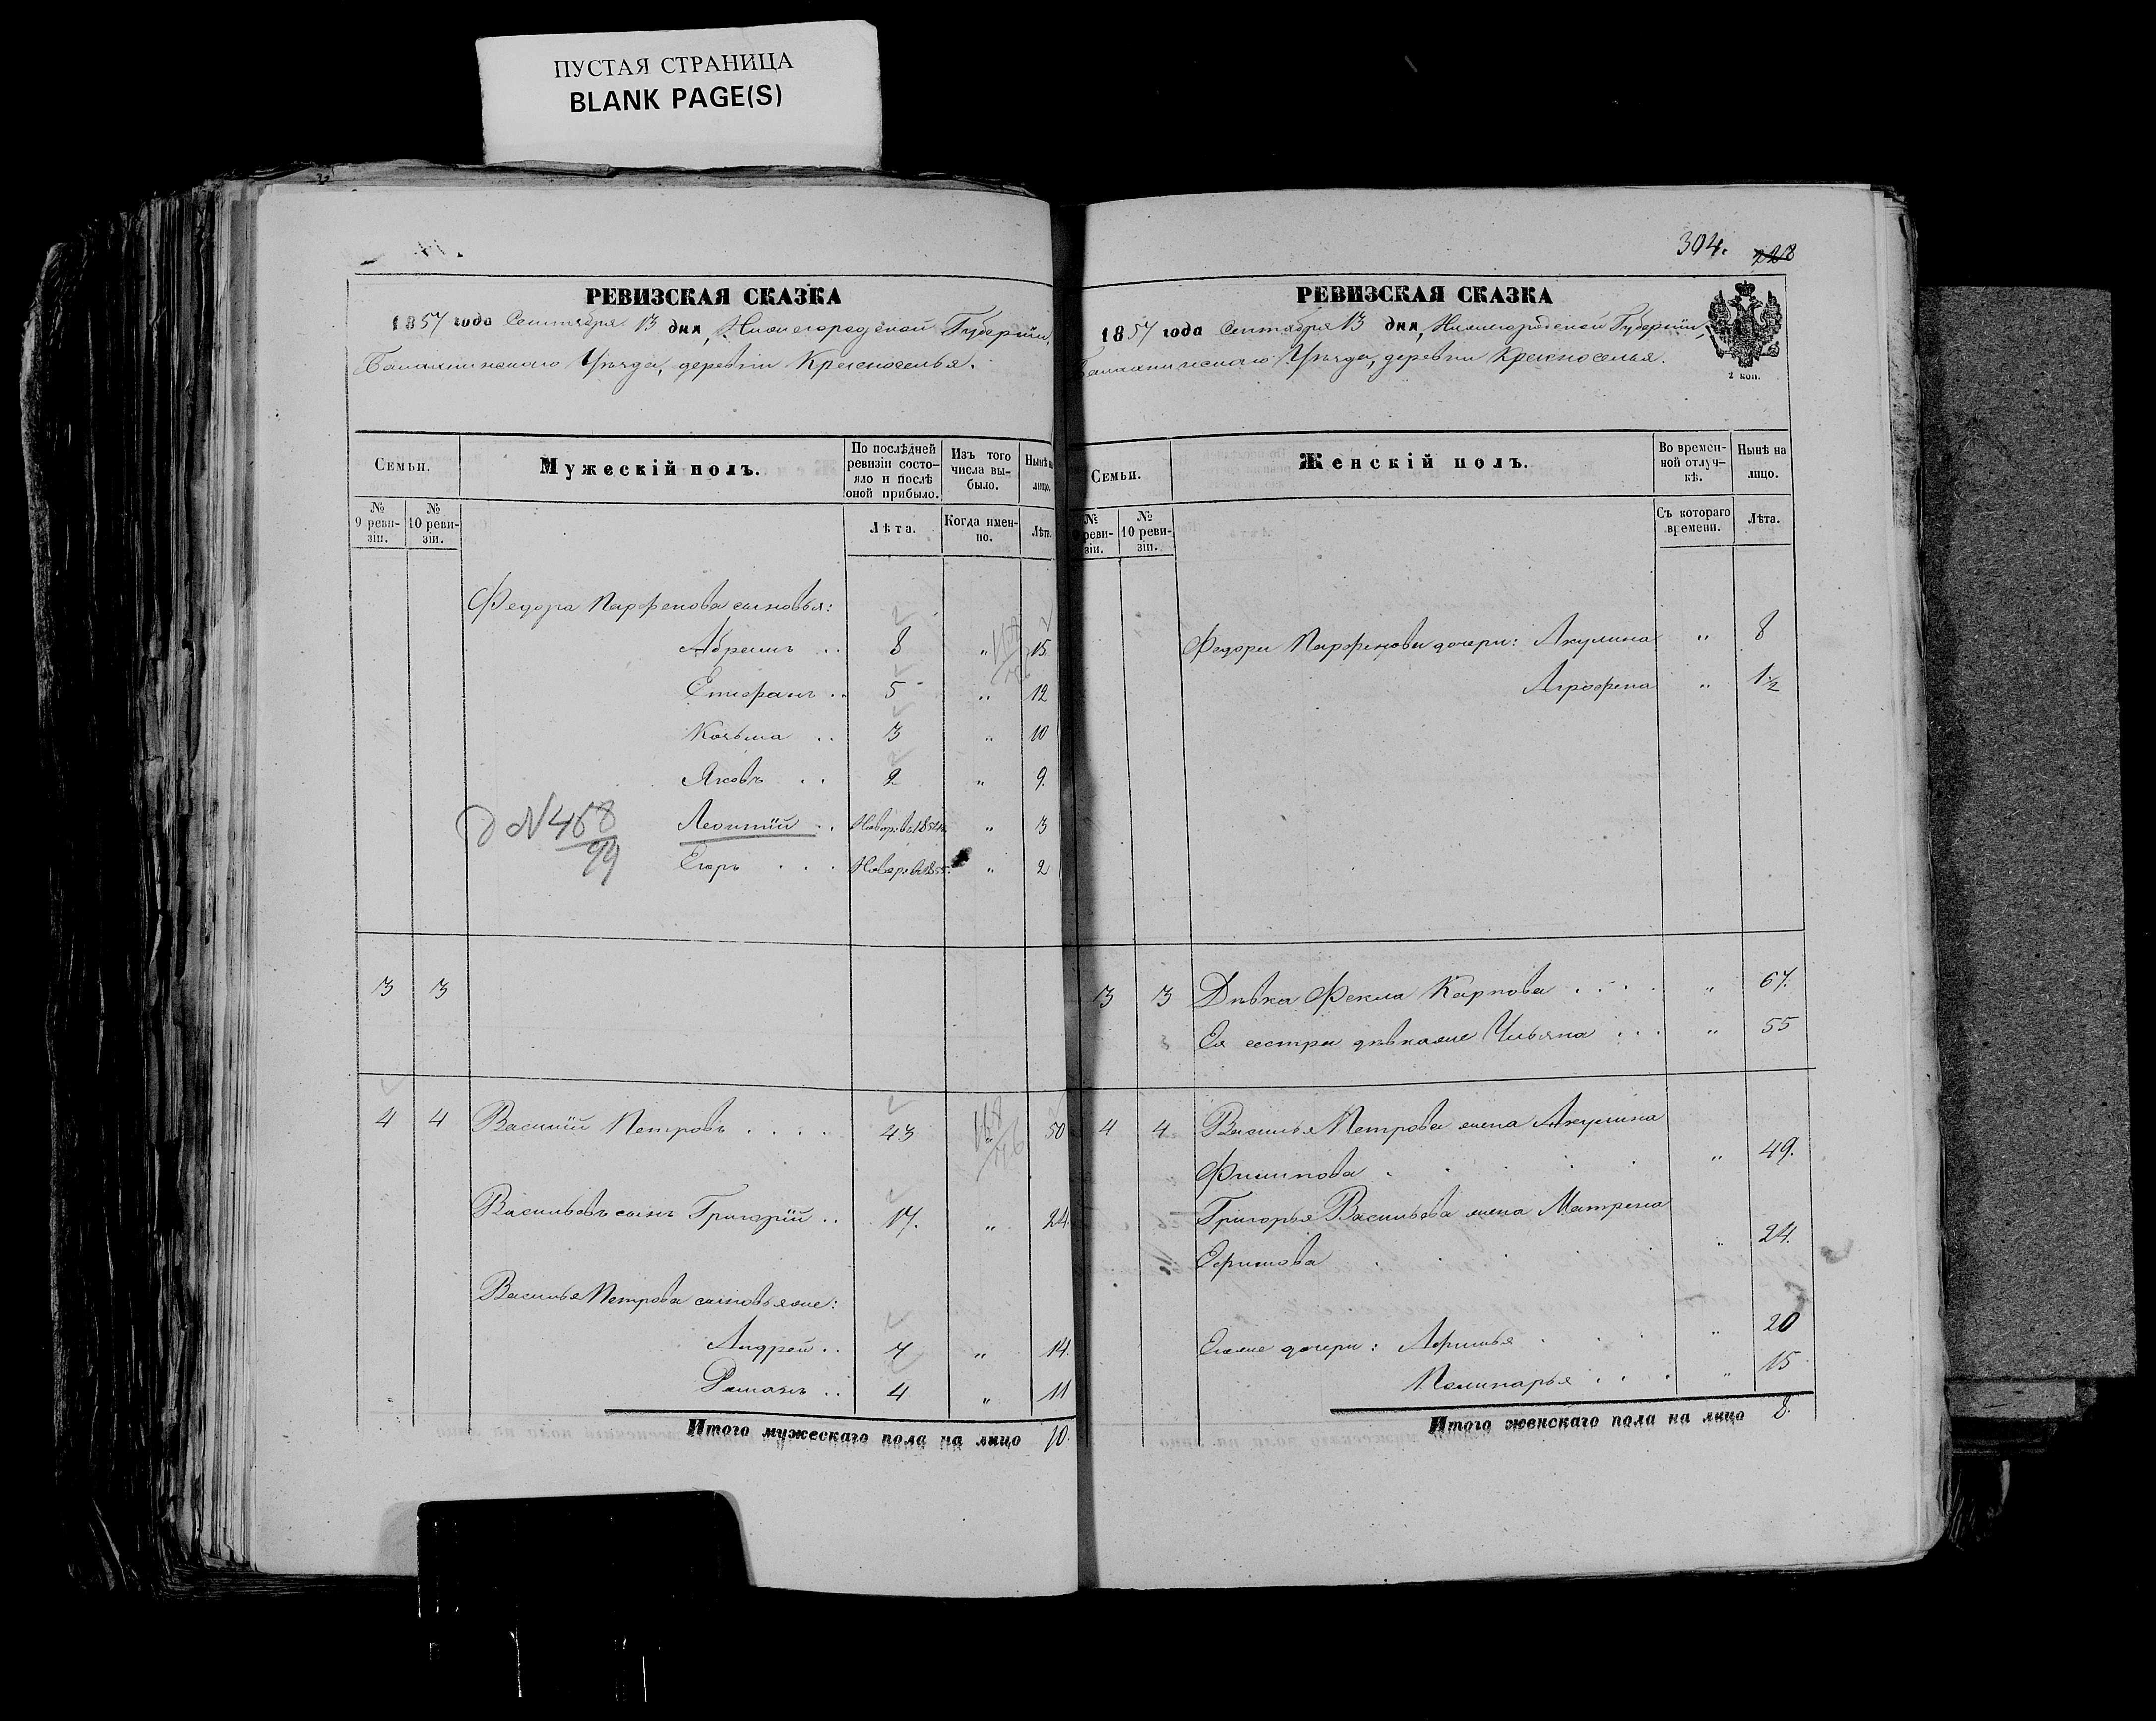 ПУСТАЯ СТРАНИЦА
BLANK PAGE(S)
РЕВИЗСКАЯ СКАЗКА
1857 года Сентября 13 дня, Нижегородской Губерніи,
Балахнинскаго Уѣзда, деревни Красноселья.
Семьи.
Мужескій полъ.
По послѣдней ревизіи состояло и послѣ оной прибыло.
Изъ того числа выбыло.
Нынѣ на лицо.
№ 9 ревизіи.
№ 10 ревизіи.
Лѣта.
Когда именно.
Лѣта.
Федора Парфенова сыновья:
Абрамъ .. 8 " 15.
Епифанъ .. 5 " 12
Козьма .. 3 " 10
Яковъ .. 2 " 9.
д №468/99 Леонтій .. Новорожд. 1854. " 3
Егоръ ... Новорожд. 1855. " 2
3 3
4 4 Василій Петровъ .... 43 " 50
Васильевъ сынъ Григорій .. 17. " 24.
Василья Петрова сыновья же:
Андрей .. 7 " 14.
Романъ .. 4 " 11
Итого мужескаго пола на лицо 10.
304. 228
РЕВИЗСКАЯ СКАЗКА
1857 года Сентября 13 дня, Нижегородской Губерніи,
Балахнинскаго Уѣзда, деревни Красноселья.
2 коп.
Семьи.
Женскій полъ.
Во временной отлучкѣ.
Нынѣ на лицо.
№ 9 ревизіи.
№ 10 ревизіи.
Съ котораго времени.
Лѣта.
Федора Парфенова дочери: Акулина " 8
Агрофена " 1½
3 3 Дѣвка Фекла Карпова .... " 67.
Ея сестра дѣвка же Ульяна ... " 55
4 4 Василья Петрова жена Акулина
Филипова . . . . " 49.
Григорья Васильева жена Матрена
Ефимова . . . . " 24.
Его же дочери: Афимья . . . " 20
Полинарья .... " 15
Итого женскаго пола на лицо 8.